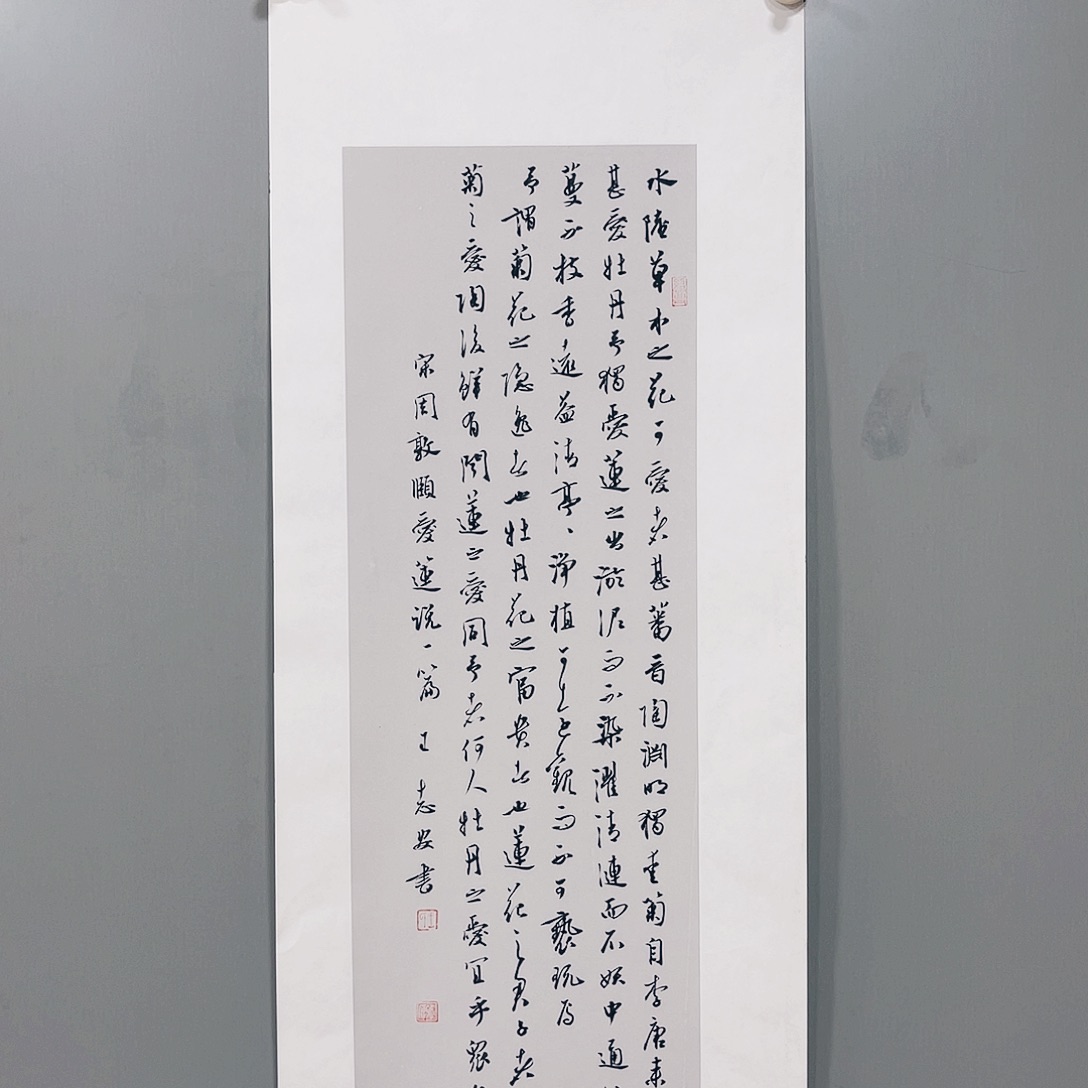 水陸草木之花可愛者甚蕃晉陶淵明獨愛菊自李唐來
甚愛牡丹予獨愛蓮之出淤泥而不染濯清漣而不妖中通
蔓不枝香遠益清亭、淨植可遠觀而不可褻玩焉
予謂菊花之隱逸者也牡丹花之富貴者也蓮花之君子者
菊之愛陶後鮮有聞蓮之愛同予者何人牡丹之愛宜乎眾
宋周敦頤愛蓮說一篇 王志安書